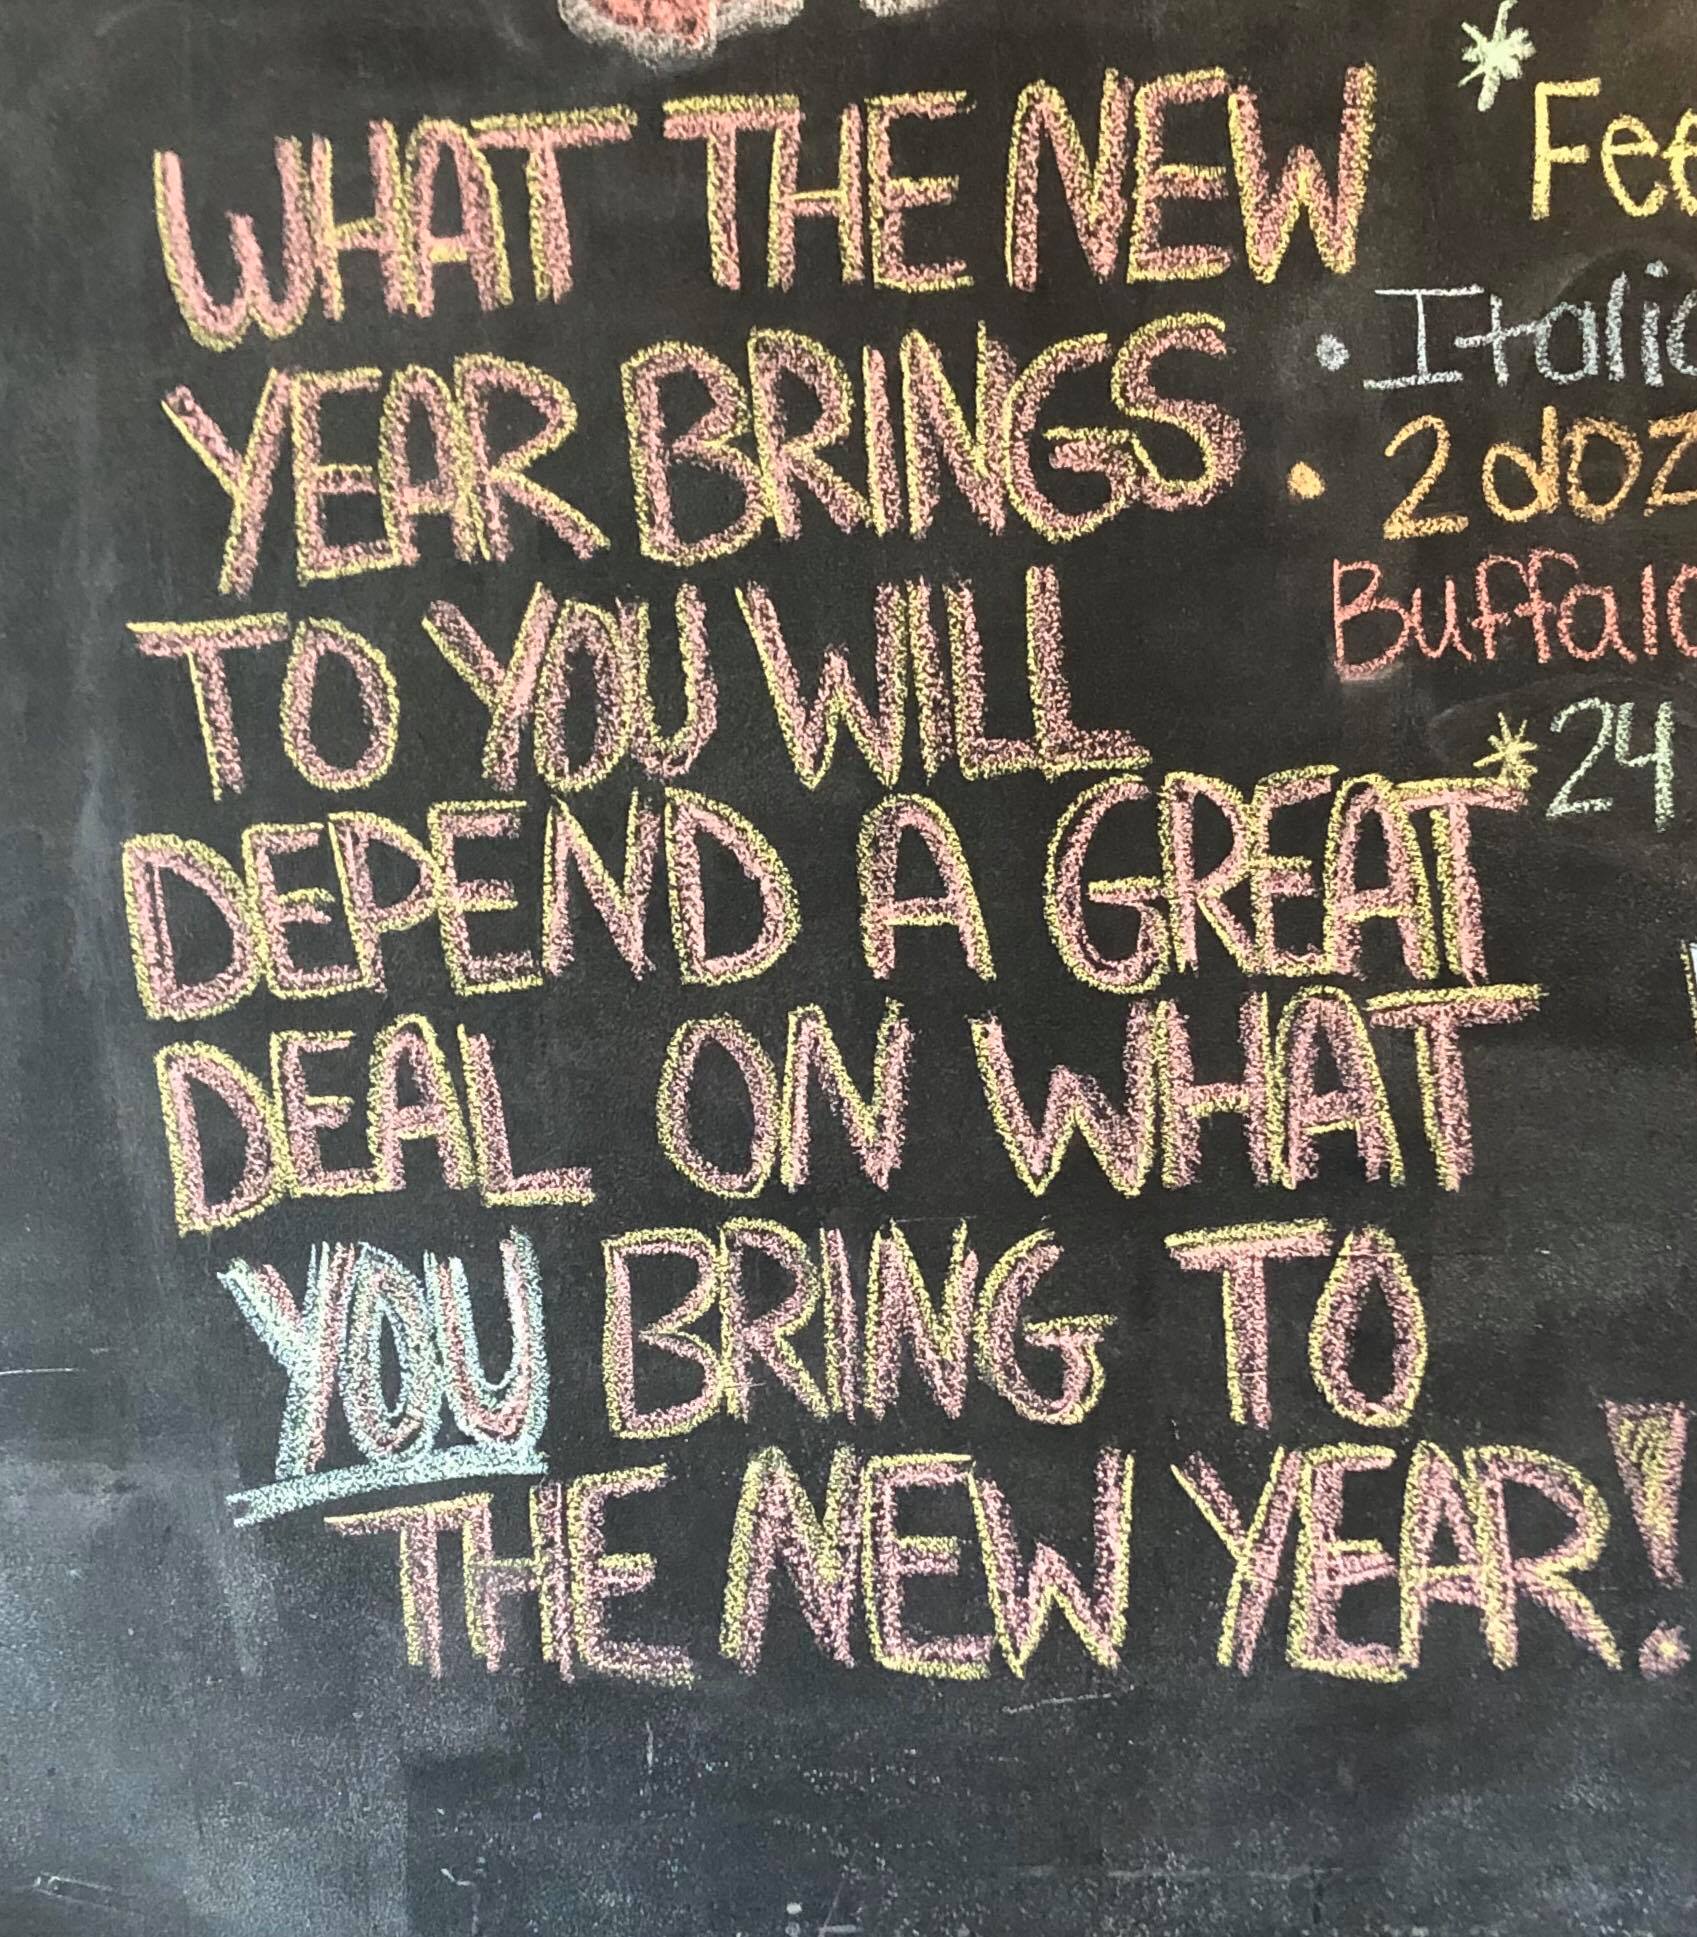 WHAT THE NEW
YEAR BRINGS
TO YOU WILL
DEPEND A GREAT
DEAL ON WHAT
YOU BRING TO
THE NEW YEAR!
*Fee
• Italic
• 2 doz
Buffalo
*24